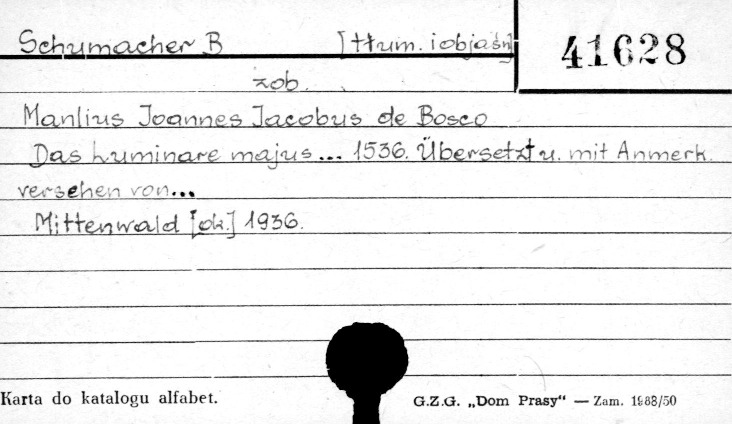 Schumacher B [tłum. i objaśn]
41628
zob.
Manlius Joannes Jacobus de Bosco
Das Luminare majus... 1536. Übersetzt u. mit Anmerk.
versehen von...
Mittenwald [ok.] 1936.
Karta do katalogu alfabet.
G.Z.G. „Dom Prasy“ — Zam. 1988/50